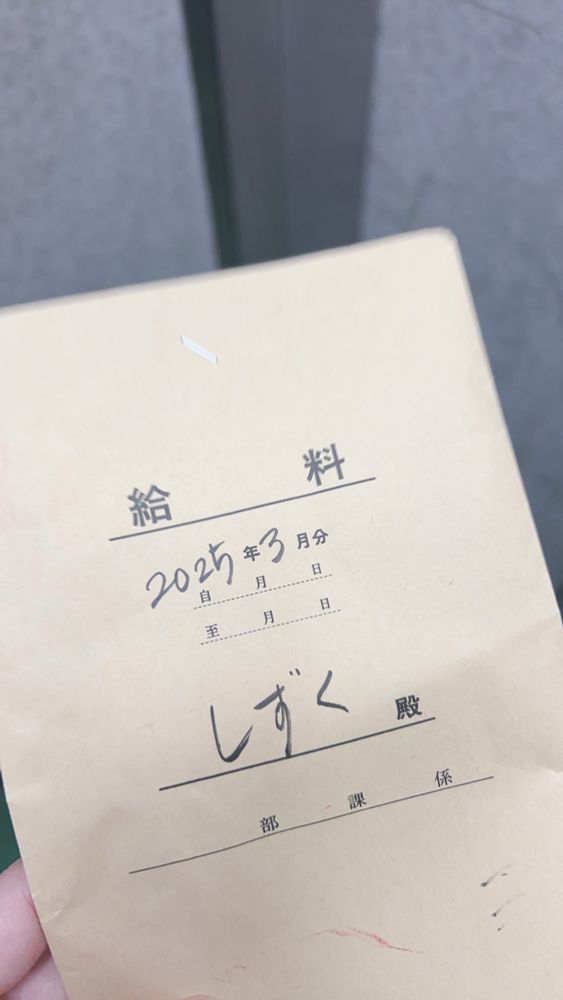 給料
2025年3月分
自 月 日
至 月 日
しずく 殿
部 課 係